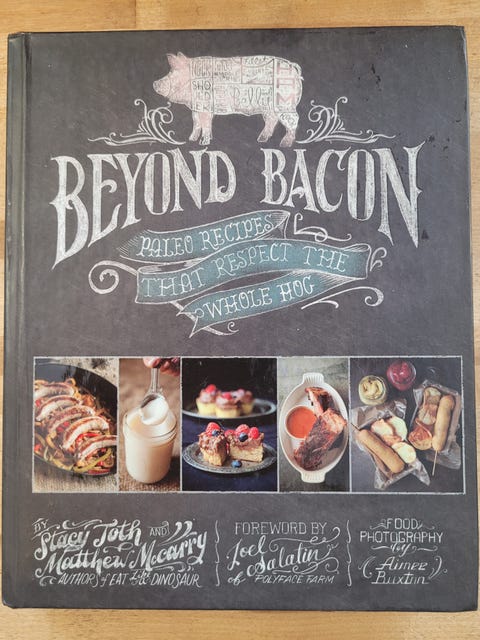 SHOULDER
BELLY
BEYOND BACON
PALEO RECIPES
THAT RESPECT THE
WHOLE HOG
BY
Stacy Toth AND
Matthew McCarry
AUTHOR of EAT Like a DINOSAUR
FOREWORD BY
Joel
Salatin
of POLYFACE FARM
FOOD
PHOTOGRAPHY
by
Aimee
Buxton